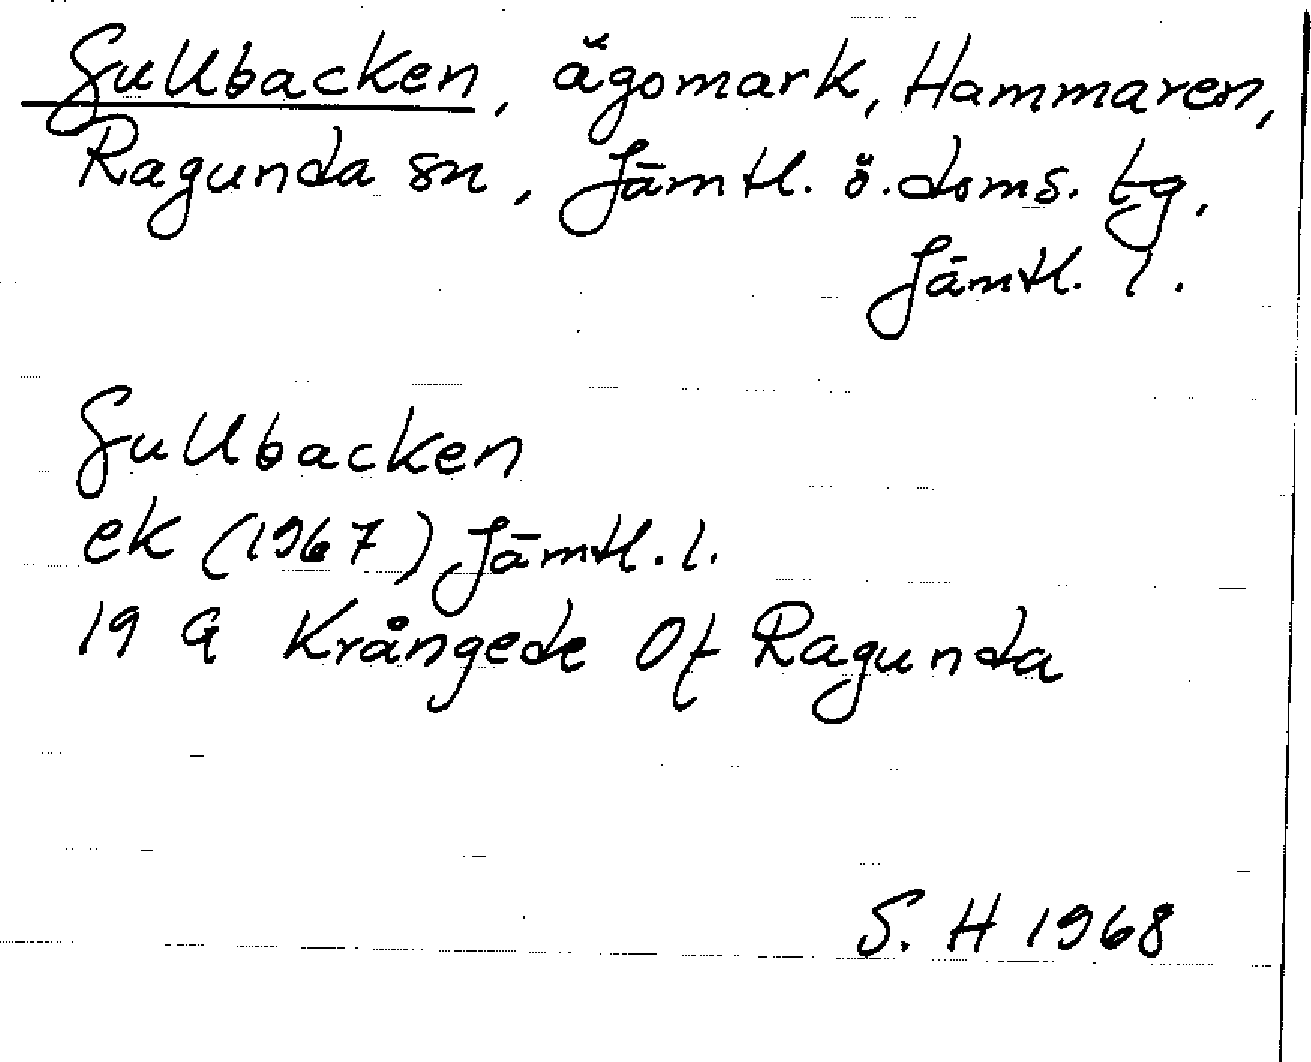 Gullbacken, ägomark, Hammaren,
Ragunda sn, Jämtl. ö. doms. tg,
Jämtl. l.
Gullbacken
ek (1967) Jämtl. l.
19 G Krångede Of Ragunda
S. H 1968